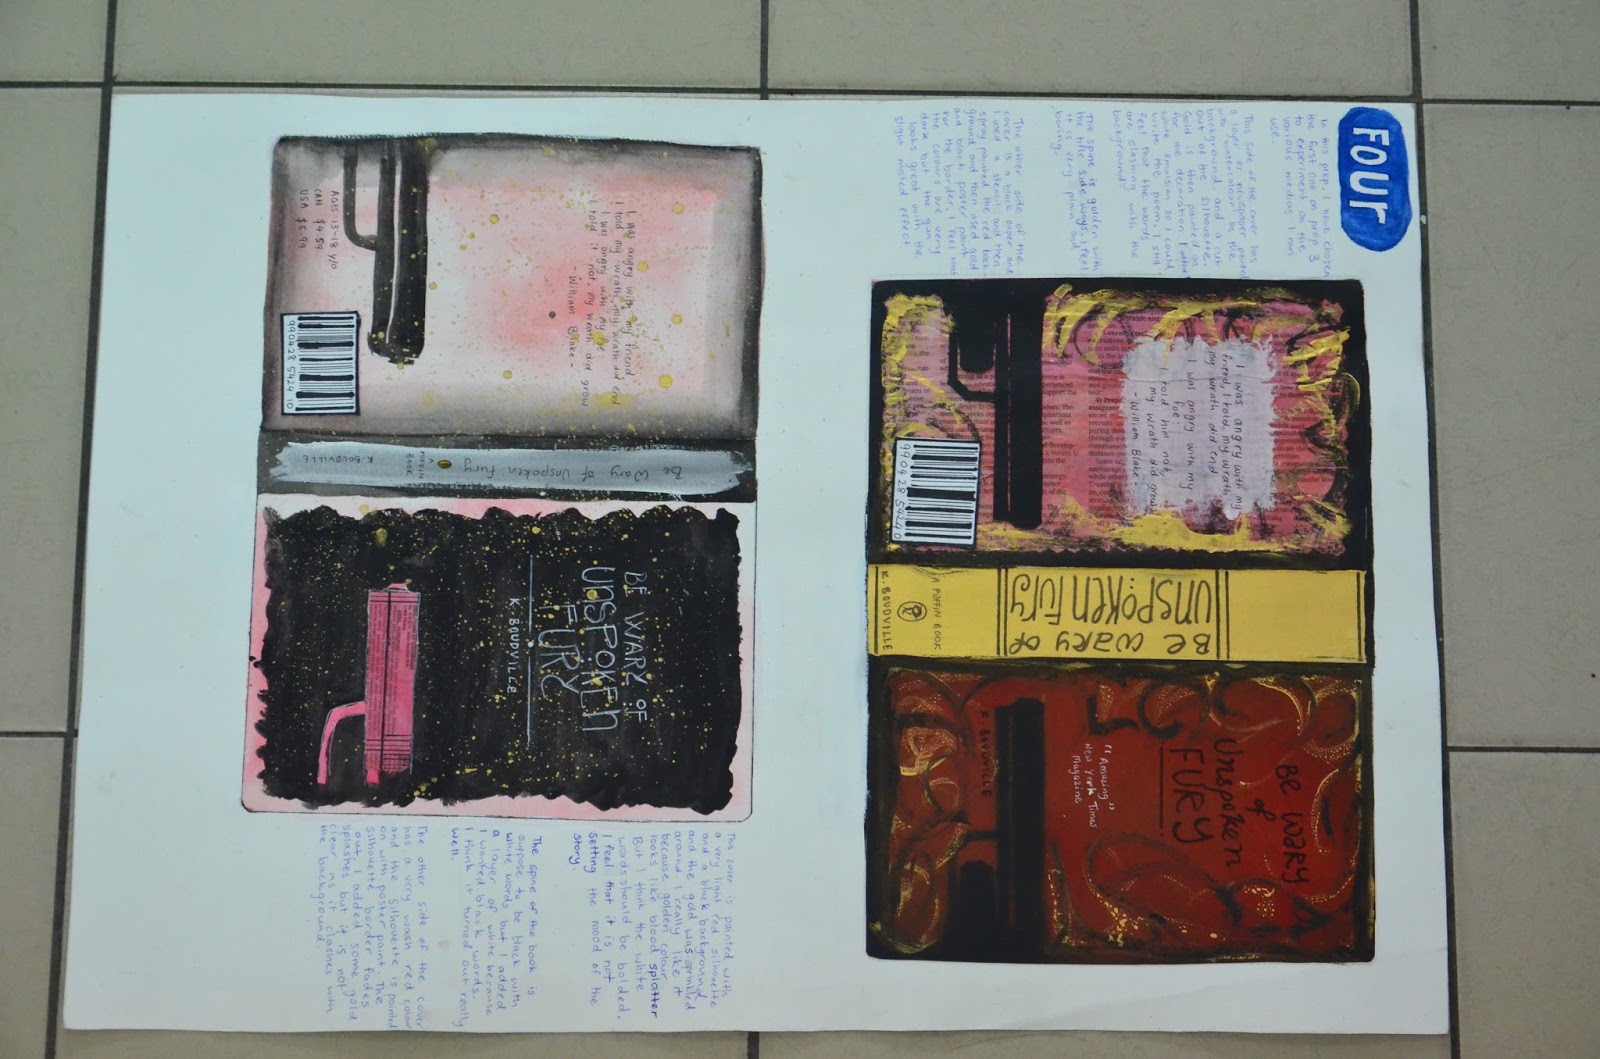 FOUR
In this prep, I have chosen
the first one on prep 3
to experiment on the
various medias I can
use.
This side of the cover has
a layer of newspaper painted
with watercolour as the
background and a cut
out of the silhouette.
Gold is then painted on
for me decoration. I
white emulsion so I could
write the poem. I still
feel that the words
are clashing with the
background.
The spine is golden with
the title side ways. I feel
it is very plain and
boring.
The other side of the
cover is a black paper and
I used a stencil and then
spray painted the red back-
ground and then used gold
and black poster paint
for the border. I feel that
the colours are very
dark but the gun
looks great with the
slight misted effect.
I was angry with my
friend, I told my wrath,
my wrath did end
I was angry with my
foe:
I told him not,
my wrath did grow
- William Blake -
990428 542410
BE WARY OF
UNSPOKEN FURY
A PUFFIN BOOK
K. BOUDVILLE
BE WARY
of
Unspoken
FURY
"Amazing"
New York Times
Magazine
K. BOUDVILLE
I was angry with my friend
I told my wrath, my wrath did end
I was angry with my foe
I told it not, my wrath did grow
- William Blake -
AGES: 13-18 y/o
CAN $4.59
USA $5.99
990428 542410
Be Wary of Unspoken Fury
A
PUFFIN
BOOK
K. BOUDVILLE
BE WARY OF
UNSPOKEN
FURY
K. BOUDVILLE
This cover is painted with
a very light red silhouette
and a black background
and the gold was sprinkled
around. I really like it
because golden colour
looks like blood splatter
But I think the white
words should be bolded.
I feel that it is not
setting the mood of the
story.
The spine of the book is
suppose to be black with
white words but I added
a layer of white because
I wanted black words.
I think it turned out really
well.
The other side of the cover
has a very wash red color
and the silhouette is painted
on with poster paint. The
silhouette border fades
out. I added some gold
splashes but it is not
clear as it clashes with
the background.